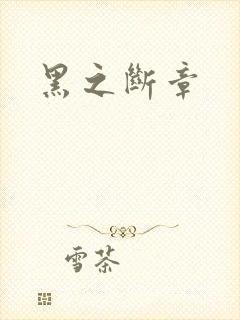 黑之斷章
雪茶